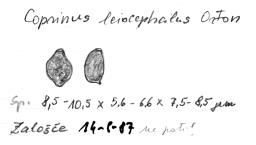 Coprinus leiocephalus Orton
Sp.: 8,5 - 10,5 x 5,6 - 6,6 x 7,5 - 8,5 µm
Založče 14-6-87